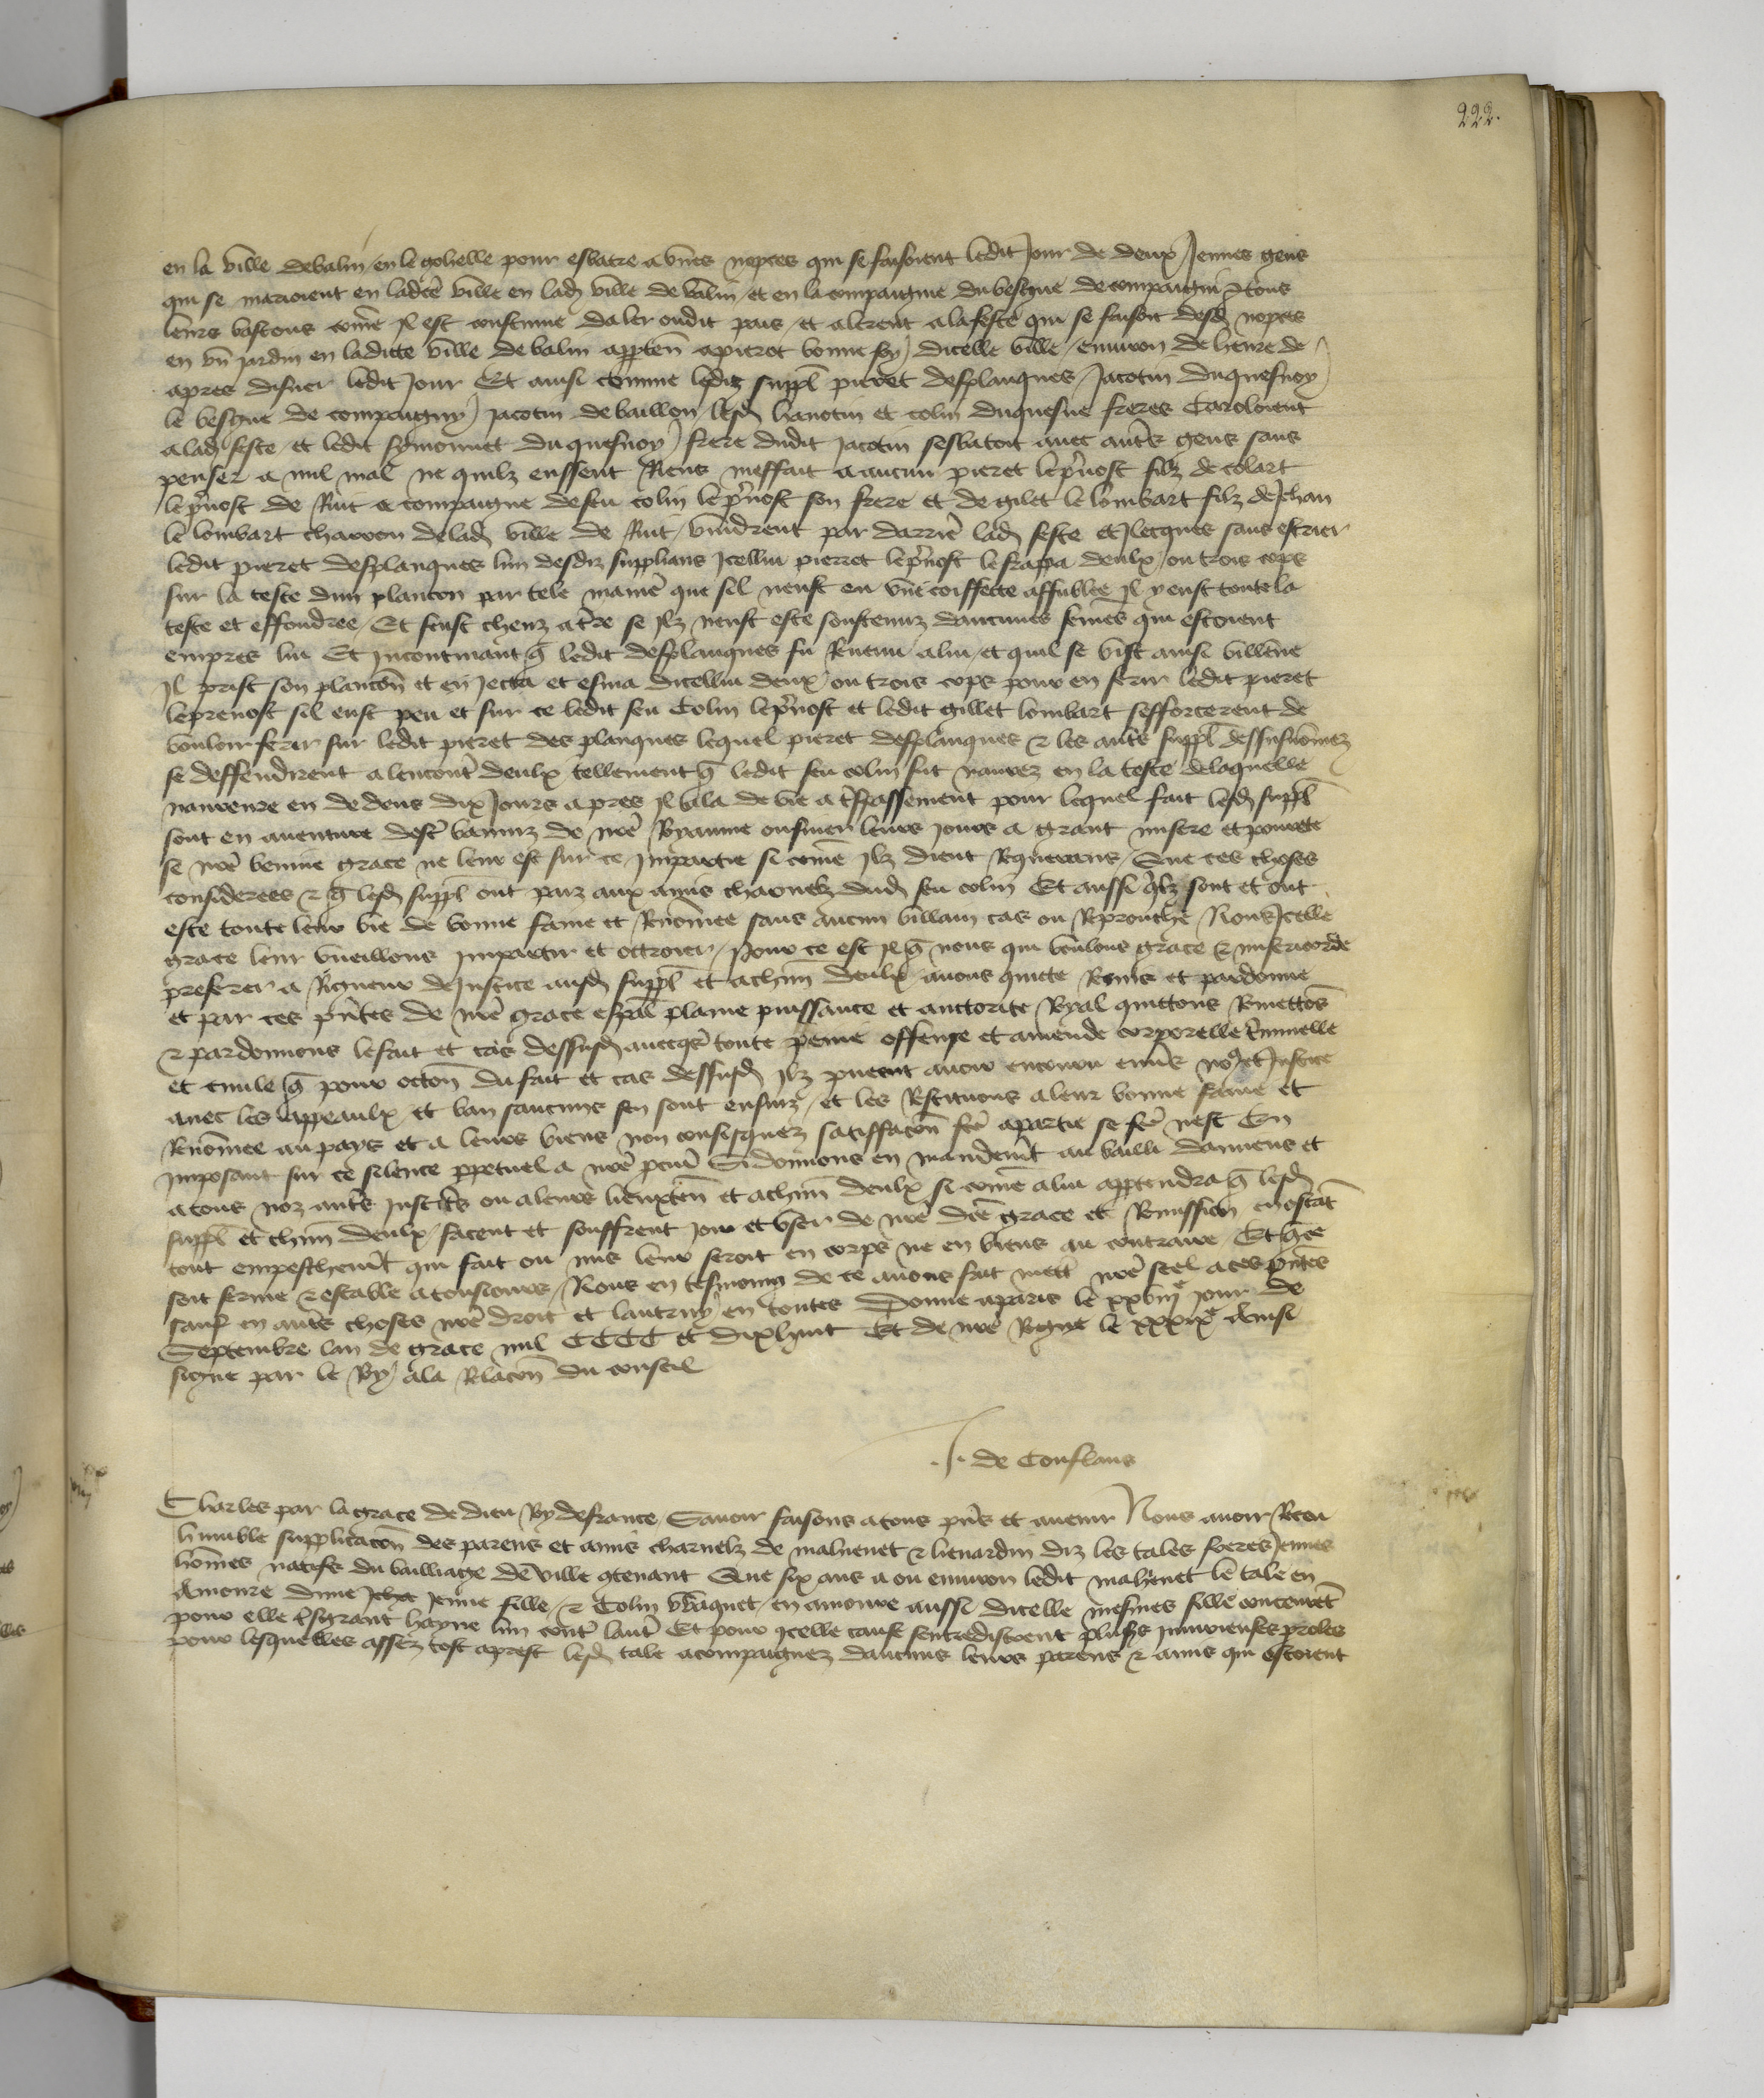 222.
en la ville de valin en le gohelle pour esbatre a unes nopces qui se faisoient ledit jour de deux jennes gens
qui se marioient en ladicte ville en lad ville de valin et en la compaignie du besgue de compaigni a tous
leurs bastons comē il est coustume daler oudit pais et alerent a la feste qui se faisoit desd nopces
en un jardin en ladicte ville de valin apparten a pierot bonne foy dicelle ville environ de heure de
apres disner ledit jour Et ainsi comme lesdiz suppl pieret desplanques Jacotin duquesnoy
le besgue de compaigny Jacotin de baillon lesd hanotin et colin duquesne freres Caroloient
a lad feste et ledit symonnet duquesnoy frere dudit jacotin sesbatoit avec autrs gens sans
penser a nul mal ne quilz eussent Riens meffait a aucun pieret le pvost filz de colart
le pvost de Ruit a compaigne de feu colin le pvost son frere et de gilet le lombart filz de Jehan
le lombart charron de lad ville de Ruit vindrent par darriē lad feste et illecques sans escrier
ledit pieret desplanques lun desdiz supplians Icellui pierret le pvost le frapa deulx ou trois cops
sur la teste dun plancon par tele maniē que sil neust eu une coiffecte affublee Il y eust toute la
teste et effondree Et feust cheuz a tre se Ilz neust este soustenuz daucunes femes qui estoient
empres lui Et Incontinant q ledit desplanques fu Revenu a lui et quil se vist ainsi villene
Il prist son plancon et en Jecta et esma dicellui deux ou trois cops pour en ferir ledit pieret
leprevost sil eust peu et sur ce ledit feu Colin le pvost et ledit gillet lombart sefforcerent de
vouloir ferir sur ledit pieret des planques lequel pieret desplanques & les autrs suppl dessusnommez
se deffendirent a lencontr deulx tellement q ledit feu colin fut navrez en la teste de laquelle
navreure en dedens dix Jours apres Il ala de vie a trespassement pour lequel fait lesd suppl
sont en aventure destr banniz de nre Royaume ou finer leurs jours a grant misere et povrete
se nre benine grace ne leur est sur ce Impartie si comē Ilz dient Requerans Que ces choses
considerees & q lesd suppl ont paiz aux amis charnelz dud feu colin Et aussi qlz sont et ont
este toute leur vie de bonne fame et Renommee sans aucun villain cas ou Reprouche Nous Icelle
grace leur vueillons Impartir et ottroier Pour ce est Il q nous qui voulons grace & misericorde
preferer a Rigueur de Justice ausd suppl et a chūn deulx avons quicte Remis et pardonne
et par ces pntes de nre grace espal plaine puissance et auctorite Royal quittons Remettos
& pardonnons le fait et cas dessusd avecqs toute peine offense et amende corporelle criminelle
et civile q pour occon du fait et cas dessusd Ilz pevent avoir encouru envers nous et Justice
avec les appeaulx et ban saucuns sen sont ensuiz et les Restituons a leur bonne fame et
Renommee au pays et a leurs biens non confisquez satisfacon fce a partie se fce nest En
Imposant sur ce silence ppetuel a nre pcur Si donnons en mandemt au bailli damiens et
a tous noz autrs justiciers ou a leurs lieuxten et a chūn deulx si comē a lui appendra q lesd
suppl et chūn deulx facent et seuffrent joir et user de nre dce grace et Remission en ostat
tout empeschemt qui fait ou mis leur seroit en corps ne en biens au contraire Et q ce
soit ferme & estable a tousiours Nous en tesmoing de ce avons fait mett nre scel a ces pntes
sauf en autrs choses nre droit et lautruy en toutes Donne a paris le xxviije jour de
Septembre lan de grace mil CCCC et dixhuit Et de nre Regne le xxxixe Ainsi
signe par le Roy a la Relacon du conseil
J. de Conflans
Charles par la grace de dieu Roy de france Savoir faisons a tous pns et avenir Nous avoir Receu
humble supplicacon des parens et amis charnelz de mahienet & lienardin diz les tales freres Jennes
hommes natifs du bailliage de ville contenant Que six ans a ou environ ledit mahienet le tale en
Amoure dune Jeune fille & Colin Waquet en amoure aussi dicelle mesmes fille conceurēt
pour elle tsgrant hayne lun contr lautr Et pour Icelle cause sentredistrent pluss Injurieuses proles
pour lesquelles assez tost aprest lesd tale acompaignez daucuns leurs parens & amis qui estoient